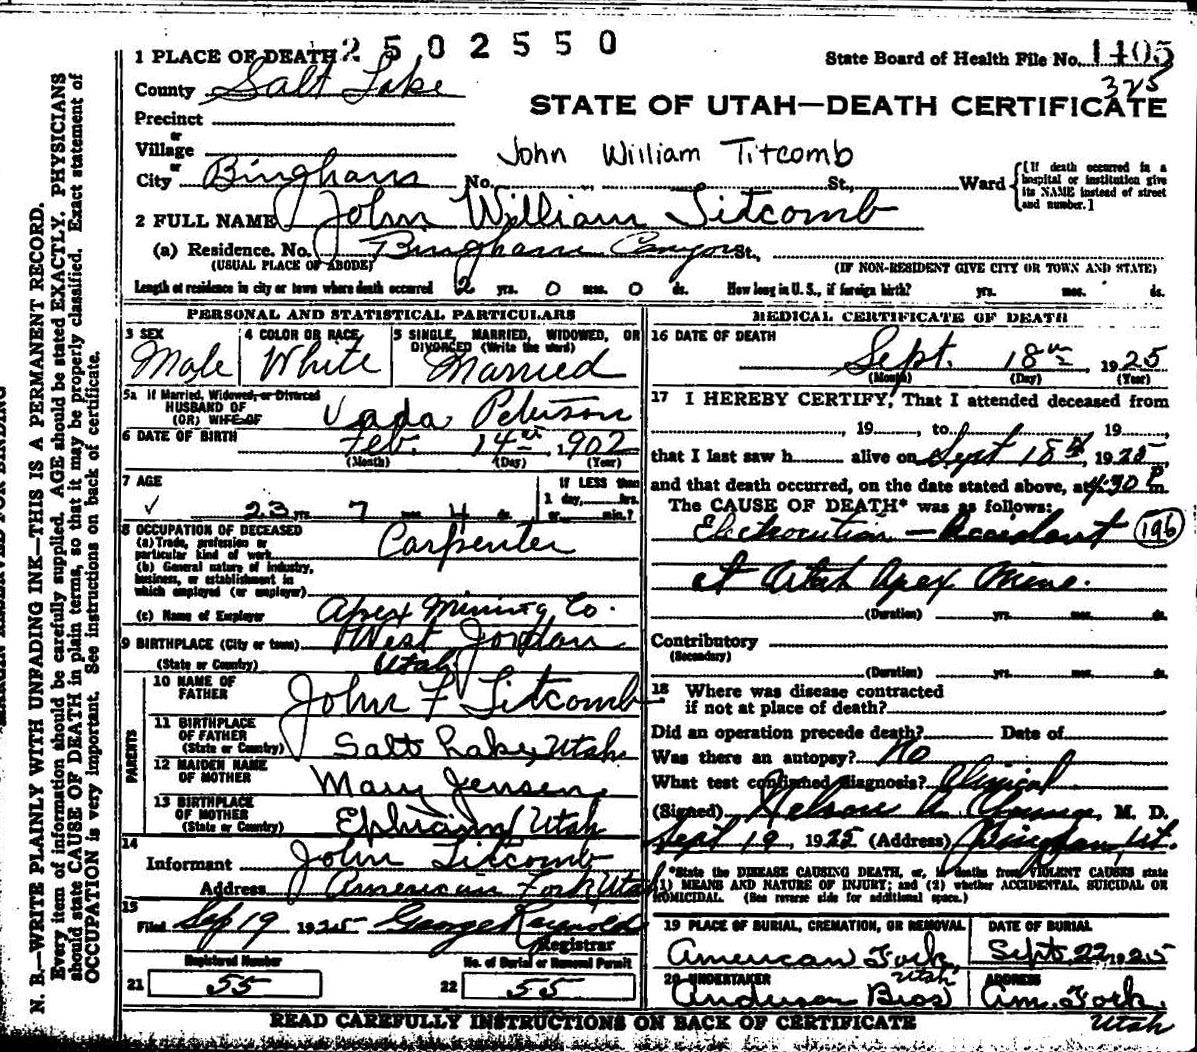 2502550
1 PLACE OF DEATH
State Board of Health File No. 1405
325
County Salt Lake
STATE OF UTAH—DEATH CERTIFICATE
Precinct
or
Village
John William Titcomb
or
City Bingham No. St., Ward
[If death occurred in a hospital or institution give its NAME instead of street and number.]
2 FULL NAME John William Titcomb
(a) Residence. No. Bingham Canyon St.,
(USUAL PLACE OF ABODE) (IF NON-RESIDENT GIVE CITY OR TOWN AND STATE)
Length of residence in city or town where death occurred 2 yrs. 0 mos. 0 ds. How long in U. S., if foreign birth? yrs. mos. ds.
PERSONAL AND STATISTICAL PARTICULARS
3 SEX 4 COLOR OR RACE 5 SINGLE, MARRIED, WIDOWED, OR DIVORCED (Write the word)
Male White Married
5a If Married, Widowed, or Divorced
HUSBAND OF
(OR) WIFE OF Vada Peterson
6 DATE OF BIRTH Feb. 14 1902
(Month) (Day) (Year)
7 AGE
23 yrs. 7 mos. 4 ds.
If LESS than 1 day, hrs. or min.?
8 OCCUPATION OF DECEASED
(a) Trade, profession or particular kind of work Carpenter
(b) General nature of industry, business, or establishment in which employed (or employer)
(c) Name of Employer Apex Mining Co.
9 BIRTHPLACE (City or town) West Jordan
(State or Country) Utah
PARENTS
10 NAME OF FATHER John F Titcomb
11 BIRTHPLACE OF FATHER (State or Country) Salt Lake, Utah
12 MAIDEN NAME OF MOTHER Mary Jensen
13 BIRTHPLACE OF MOTHER (State or Country) Ephraim Utah
14
Informant John Titcomb
Address American Fork Utah
15
Filed Sep 19 1925 George Reynolds
Registrar
Registered Number No. of Burial or Removal Permit
21 55 22 55
MEDICAL CERTIFICATE OF DEATH
16 DATE OF DEATH
Sept. 18th 1925
(Month) (Day) (Year)
17 I HEREBY CERTIFY, That I attended deceased from
, 19 , to , 19 ,
that I last saw h alive on Sept 18th, 1925
and that death occurred, on the date stated above, at 4:30 P m.
The CAUSE OF DEATH* was as follows:
Electrocution — Accident 196
at Utah Apex Mine.
(Duration) yrs. mos. ds.
Contributory
(Secondary)
(Duration) yrs. mos. ds.
18 Where was disease contracted
if not at place of death?
Did an operation precede death? Date of
Was there an autopsy? No
What test confirmed diagnosis? Clinical
(Signed) Nelson M. D.
Sept 19, 1925 (Address) Bingham, Ut.
*State the DISEASE CAUSING DEATH, or, in deaths from VIOLENT CAUSES state
(1) MEANS AND NATURE OF INJURY; and (2) whether ACCIDENTAL, SUICIDAL OR
HOMICIDAL. (See reverse side for additional space.)
19 PLACE OF BURIAL, CREMATION, OR REMOVAL DATE OF BURIAL
American Fork Utah Sept. 22 1925
20 UNDERTAKER ADDRESS
Anderson Bros Am. Fork. Utah
READ CAREFULLY INSTRUCTIONS ON BACK OF CERTIFICATE
N. B.—WRITE PLAINLY WITH UNFADING INK—THIS IS A PERMANENT RECORD.
Every item of information should be carefully supplied. AGE should be stated EXACTLY. PHYSICIANS
should state CAUSE OF DEATH in plain terms, so that it may be properly classified. Exact statement of
OCCUPATION is very important. See instructions on back of certificate.